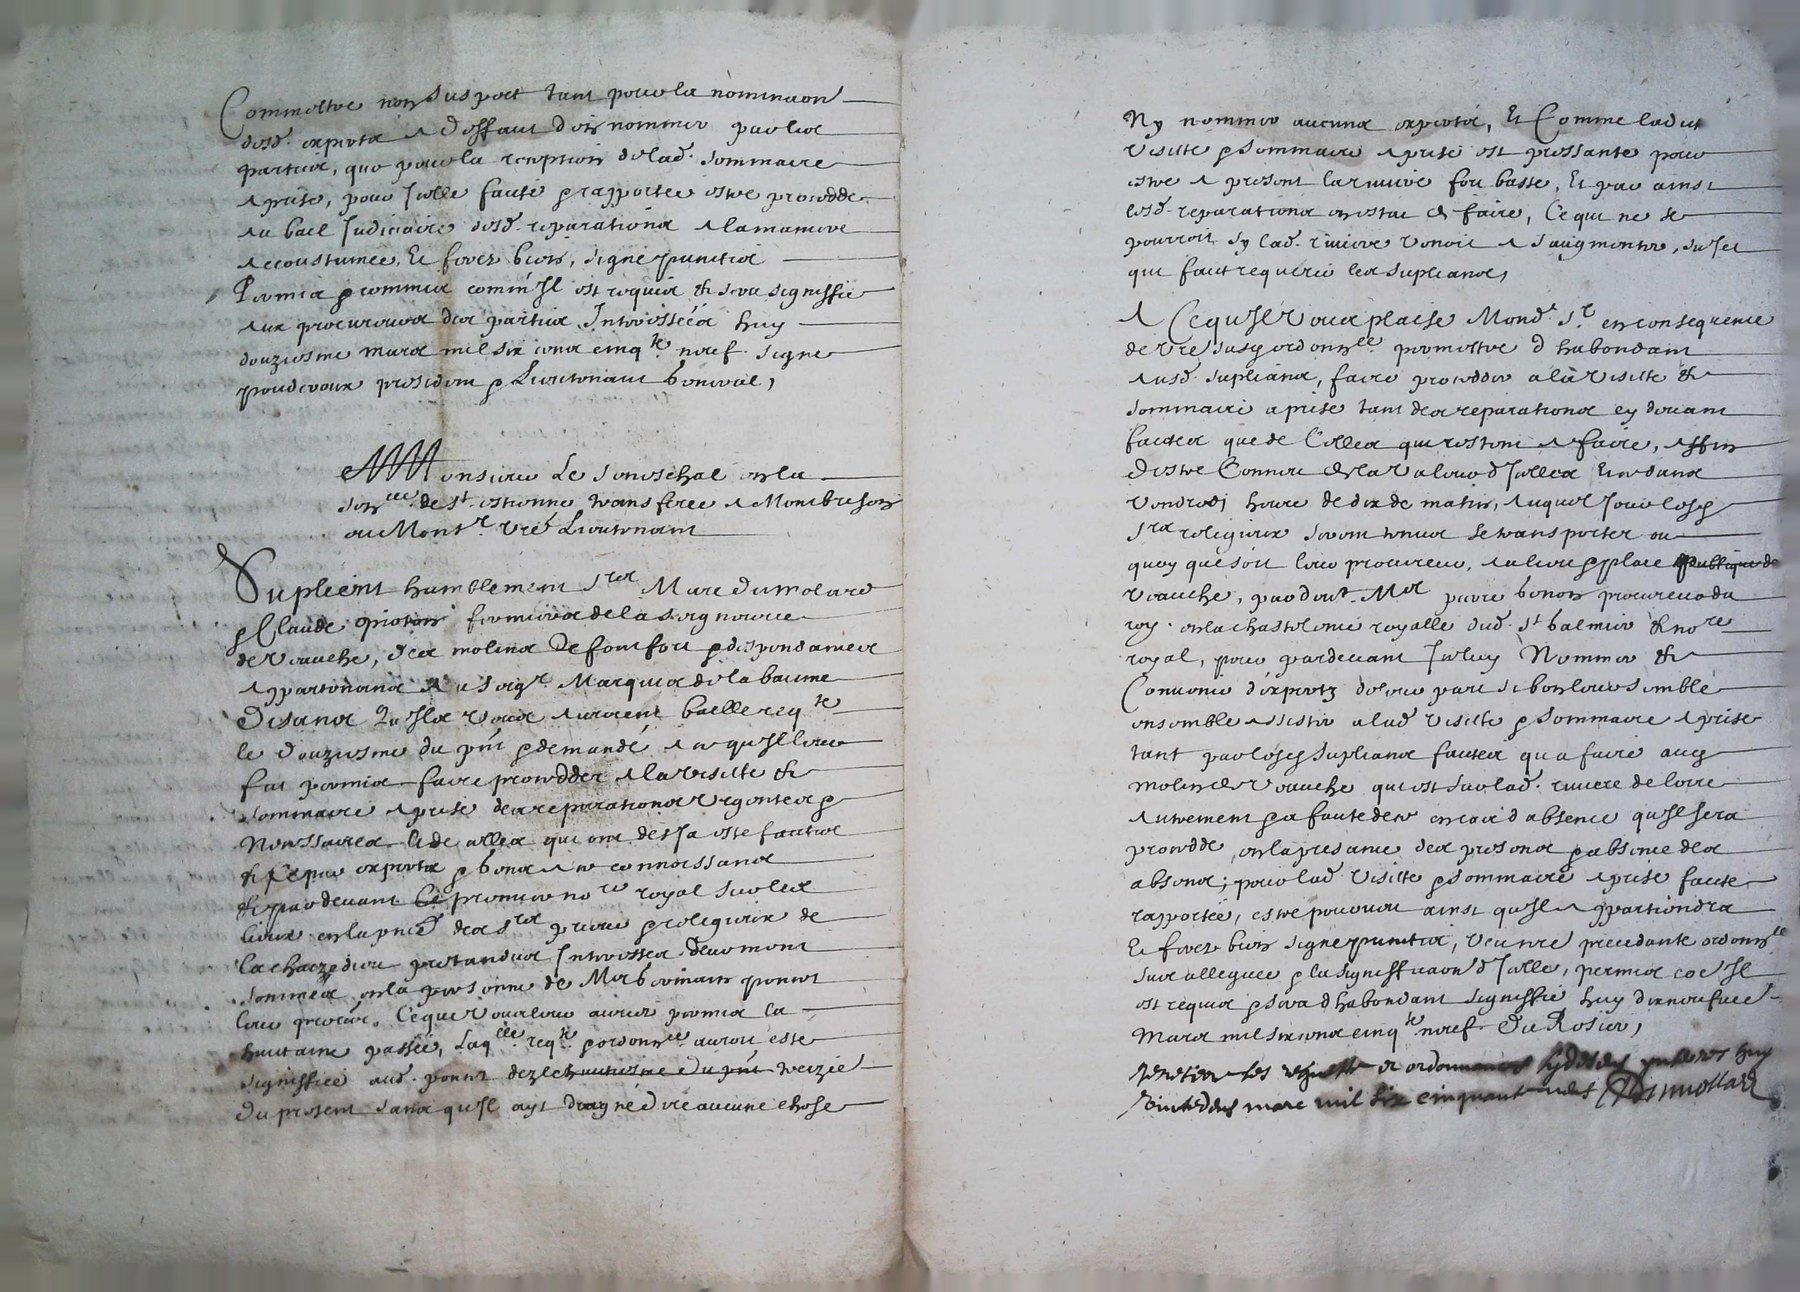 Commettre non suspect tant pour la nominaon
desd. expertz a deffaut d'en nommer par les
parties, que pour la reception de lad. sommaire
aprise, pour Icelle faite & rapportée estre proceddé
au bail Judiciaire desd. reparations a la maniere
accoustumée, Et ferez bien, signe punctis
Permis & commis comm'Il est requis & sera signiffie
aux procureurs des parties Interessées huy
douziesme mars mil six cens cinqte neuf signe
president & Lieutenant
Monsieur Le Seneschal en la
Senceé de St. estienne transferée a Montbrison
ou Monsr. Vre Lieutenant
Suplient humblement Srs Marc Dumolard
& Claude fermiers de la seigneurie
de Veauche, des molins de fontfort & despendances
appartenans au seigr. Marquis de la baume
Disans Qu'Ils Vous auroient baillé reqte
le douziesme du pnt & demandé a ce qu'Il leur
fut permis faire procedder a la Visitte &
sommaire aprise des reparations Urgentes &
Necessaires & de celles qui ont desja esté faictes
& ce par expertz & gens a ce connoissans
& par devant le premier nore royal sur les
lieux en la pnce des Srs prieur & religieux de
la chaizedieu pretandus Interessez deuement
sommés en la personne de Me ponset
leur procur. Ce que Vous leur auriez permis la
huictaine passée, Laqlle reqte & ordonnce auroit esté
signiffiee aud. ponset dez le huictiesme du pnt treizie
du present sans qu'Il ayt daigné dire aucune chose
Ny nommer aucuns expertz, Et Comme ladict
Visitte & sommaire aprise est pressante pour
estre a present la riviere fort basse, Et par ainsi
lesd. reparations en estat de faire, Ce qui ne se
pourroit sy lad. riviere venoit a s'augmenter, sujet
qui faut requerir les suplians,
A Ce qu'Il Vous plaise Mond. Sr. en consequence
de Vre susd ordonnce permettre d'habondant
ausd. suplians, faire procedder a la Visitte &
sommaire aprise tant des reparations cy devant
faictes que de Celles qui restent a faire, affin
d'estre Connu de la Valeur d'Icelles Et ce dans
Vendredj heure de dix de matin, auquel Jour lesd
Srs religieux seront tenus se transporter ou
quoy que soit leur procureur, au lieu & place publique de
Veauche, par devt. Me pierre bonon procureur du
roy en la chastelenie royalle dud. St balmier & nore
royal, pour pardevant Iceluy Nommer &
Convenir d'expertz de leur part si bon leur semble
ensemble assister a lad. Visitte & sommaire aprise
tant par lesd suplians faictes qu'a faire aud
molin de Veauche qui est sur lad. riviere de loire
autrement & a faute de ce en cas d'absence qu'Il sera
procedde, en la presance des presens & absence des
absens; pour lad. Visitte & sommaire aprise faicte
rapportée, estre pourveu ainsi qu'Il appartiendra
Et ferez bien signe punctis, Veu nre precedante ordonnce
sus alleguee & la signifficaon d'Icelle, permis coe Il
est requis & sera d'habondant signiffié huy dixneufvie
Mars mil six cens cinqte neuf Du Rosier,
les requeste et ordonnances huy
mars mil six cinquant neuf Dumollard